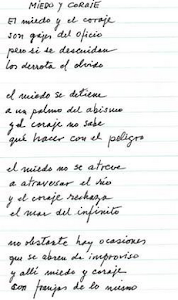 MIEDO Y CORAJE
El miedo y el coraje
son gajes del oficio
pero si se descuidan
los derrota el olvido
el miedo se detiene
a un palmo del abismo
y el coraje no sabe
qué hacer con el peligro
el miedo no se atreve
a atravesar el río
y el coraje rechaza
el mar del infinito
no obstante hay ocasiones
que se abren de improviso
y allí miedo y coraje
son franjas de lo mismo